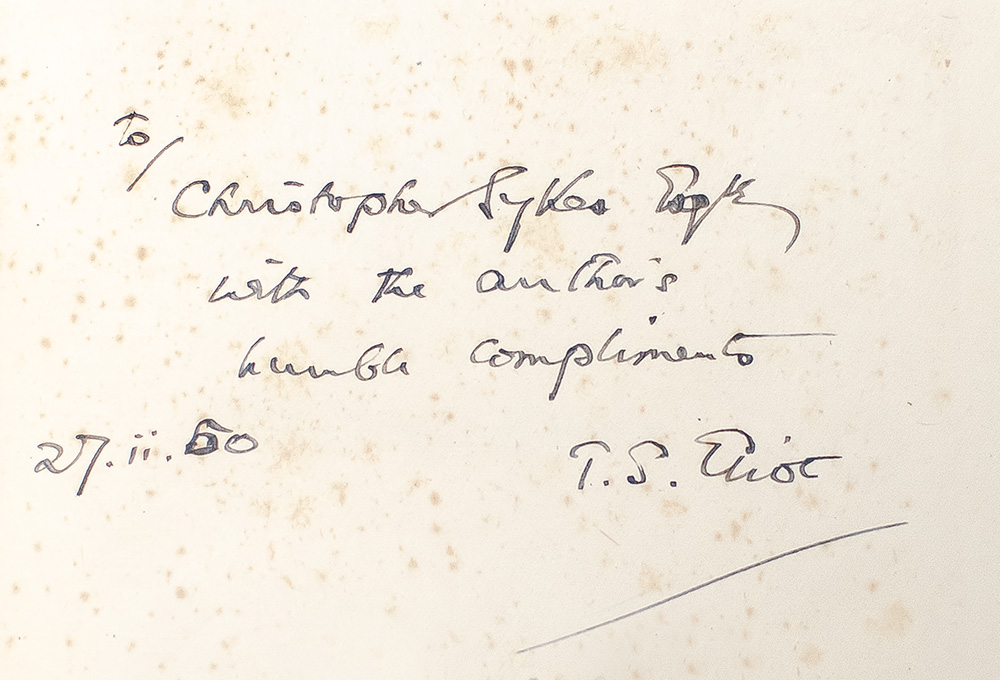 to/
Christopher Sykes Esqre
with the author's
humble compliments
27.ii.50
T. S. Eliot